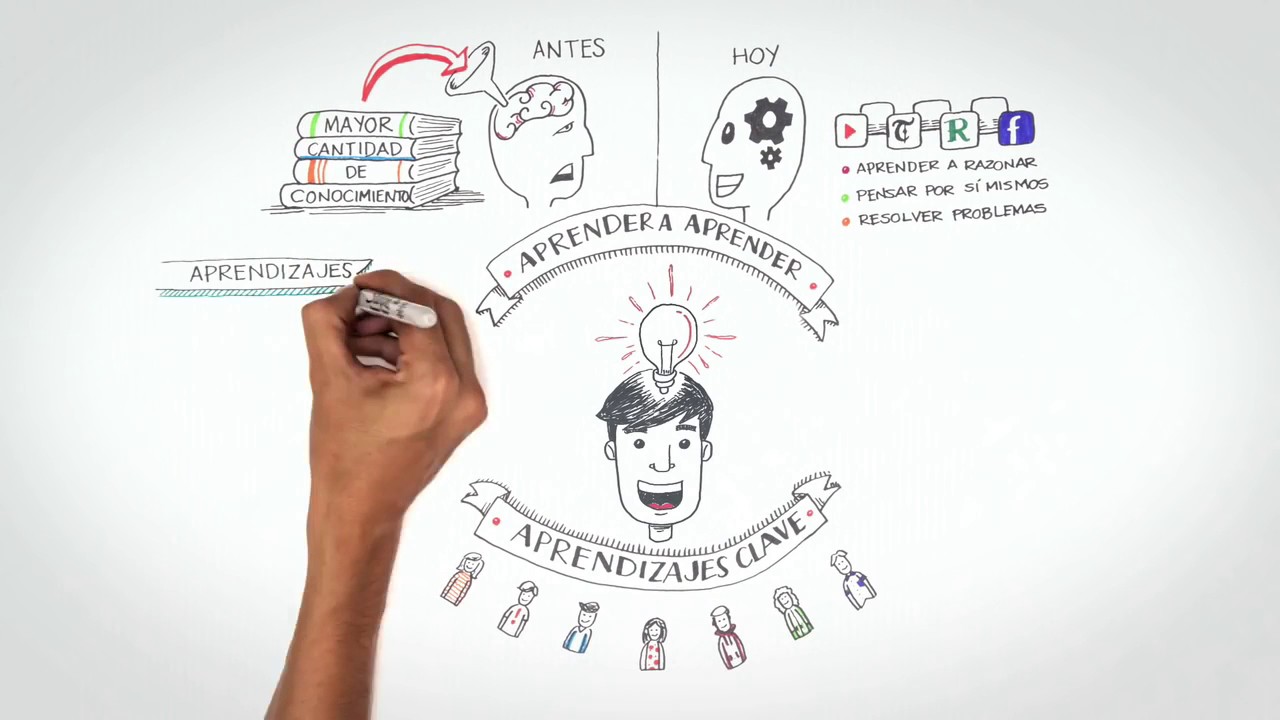 ANTES
HOY
MAYOR
CANTIDAD
DE
CONOCIMIENTO
T R f
APRENDER A RAZONAR
PENSAR POR SÍ MISMOS
RESOLVER PROBLEMAS
APRENDER A APRENDER
APRENDIZAJES
APRENDIZAJES CLAVE